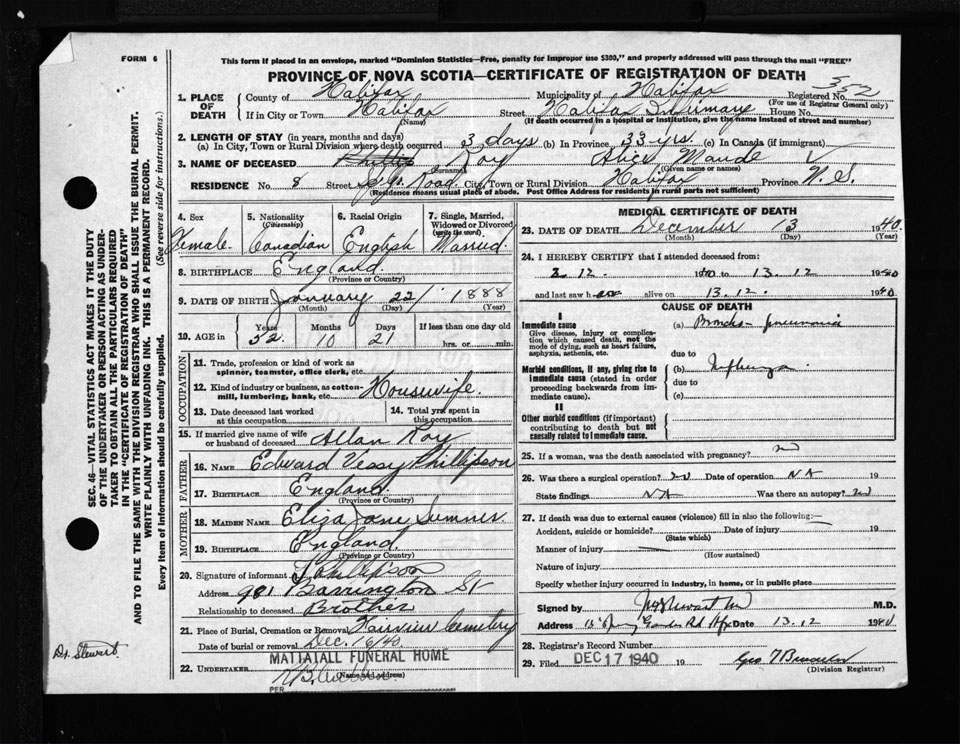 FORM 6
This form if placed in an envelope, marked "Dominion Statistics—Free, penalty for improper use $300," and properly addressed will pass through the mail "FREE"
PROVINCE OF NOVA SCOTIA—CERTIFICATE OF REGISTRATION OF DEATH
1. PLACE OF DEATH County of Halifax Municipality of Halifax Registered No.
(For use of Registrar General only)
If in City or Town Halifax Street Halifax Infirmary House No.
(Name) (If death occurred in a hospital or institution, give the name instead of street and number)
2. LENGTH OF STAY (in years, months and days)
(a) In City, Town or Rural Division where death occurred 3 days (b) In Province 33 yrs. (c) In Canada (if immigrant)
3. NAME OF DECEASED Roy Alice Maude
(Surname) (Given name or names)
RESIDENCE No. 8 Street Road City, Town or Rural Division Halifax Province N. S.
(Residence means usual place of abode. Post Office Address for residents in rural parts not sufficient)
4. Sex Female.
5. Nationality (Citizenship) Canadian
6. Racial Origin English
7. Single, Married, Widowed or Divorced (write the word) Married.
8. BIRTHPLACE England
(Province or Country)
9. DATE OF BIRTH January 22 1888
(Month) (Day) (Year)
10. AGE in Years 52 Months 10 Days 21 If less than one day old
hrs. or min.
OCCUPATION
11. Trade, profession or kind of work as spinner, teamster, office clerk, etc.
12. Kind of industry or business, as cotton-mill, lumbering, bank, etc. Housewife.
13. Date deceased last worked at this occupation
14. Total yrs. spent in this occupation
15. If married give name of wife or husband of deceased Allan Roy
FATHER
16. NAME Edward Vessy Phillipson
17. BIRTHPLACE England
(Province or Country)
MOTHER
18. MAIDEN NAME Eliza Jane Sumner
19. BIRTHPLACE England.
(Province or Country)
20. Signature of informant Phillipson
Address 981 Barrington St
Relationship to deceased Brother
21. Place of Burial, Cremation or Removal Fairview Cemetery
Date of burial or removal Dec. 16/40
22. UNDERTAKER MATTATALL FUNERAL HOME
(Name and address)
PER
MEDICAL CERTIFICATE OF DEATH
23. DATE OF DEATH December 13 1940.
(Month) (Day) (Year)
24. I HEREBY CERTIFY that I attended deceased from:
12. 1940 to 13.12 1940
and last saw h alive on 13.12. 1940
CAUSE OF DEATH
I
Immediate cause
Give disease, injury or complication which caused death, not the mode of dying, such as heart failure, asphyxia, asthenia, etc.
(a) Broncho-pneumonia
due to
Morbid conditions, if any, giving rise to immediate cause (stated in order proceeding backwards from immediate cause).
(b) Influenza
due to
(c)
II
Other morbid conditions (if important) contributing to death but not causally related to immediate cause.
25. If a woman, was the death associated with pregnancy? no
26. Was there a surgical operation? no Date of operation NA 19
State findings NA Was there an autopsy? no
27. If death was due to external causes (violence) fill in also the following:—
Accident, suicide or homicide? Date of injury 19
(State which)
Manner of injury
(How sustained)
Nature of injury
Specify whether injury occurred in industry, in home, or in public place
Signed by Stewart M.D.
Address 15 Spring Garden Rd Hfx Date 13.12 1940
28. Registrar's Record Number
29. Filed DEC 17 1940 19
(Division Registrar)
SEC. 46—VITAL STATISTICS ACT MAKES IT THE DUTY
OF THE UNDERTAKER OR PERSON ACTING AS UNDER-
TAKER TO OBTAIN ALL THE PARTICULARS REQUIRED
IN THE "CERTIFICATE OF REGISTRATION OF DEATH"
AND TO FILE THE SAME WITH THE DIVISION REGISTRAR WHO SHALL ISSUE THE BURIAL PERMIT.
WRITE PLAINLY WITH UNFADING INK. THIS IS A PERMANENT RECORD.
Every item of information should be carefully supplied. (See reverse side for instructions.)
Dr. Stewart.